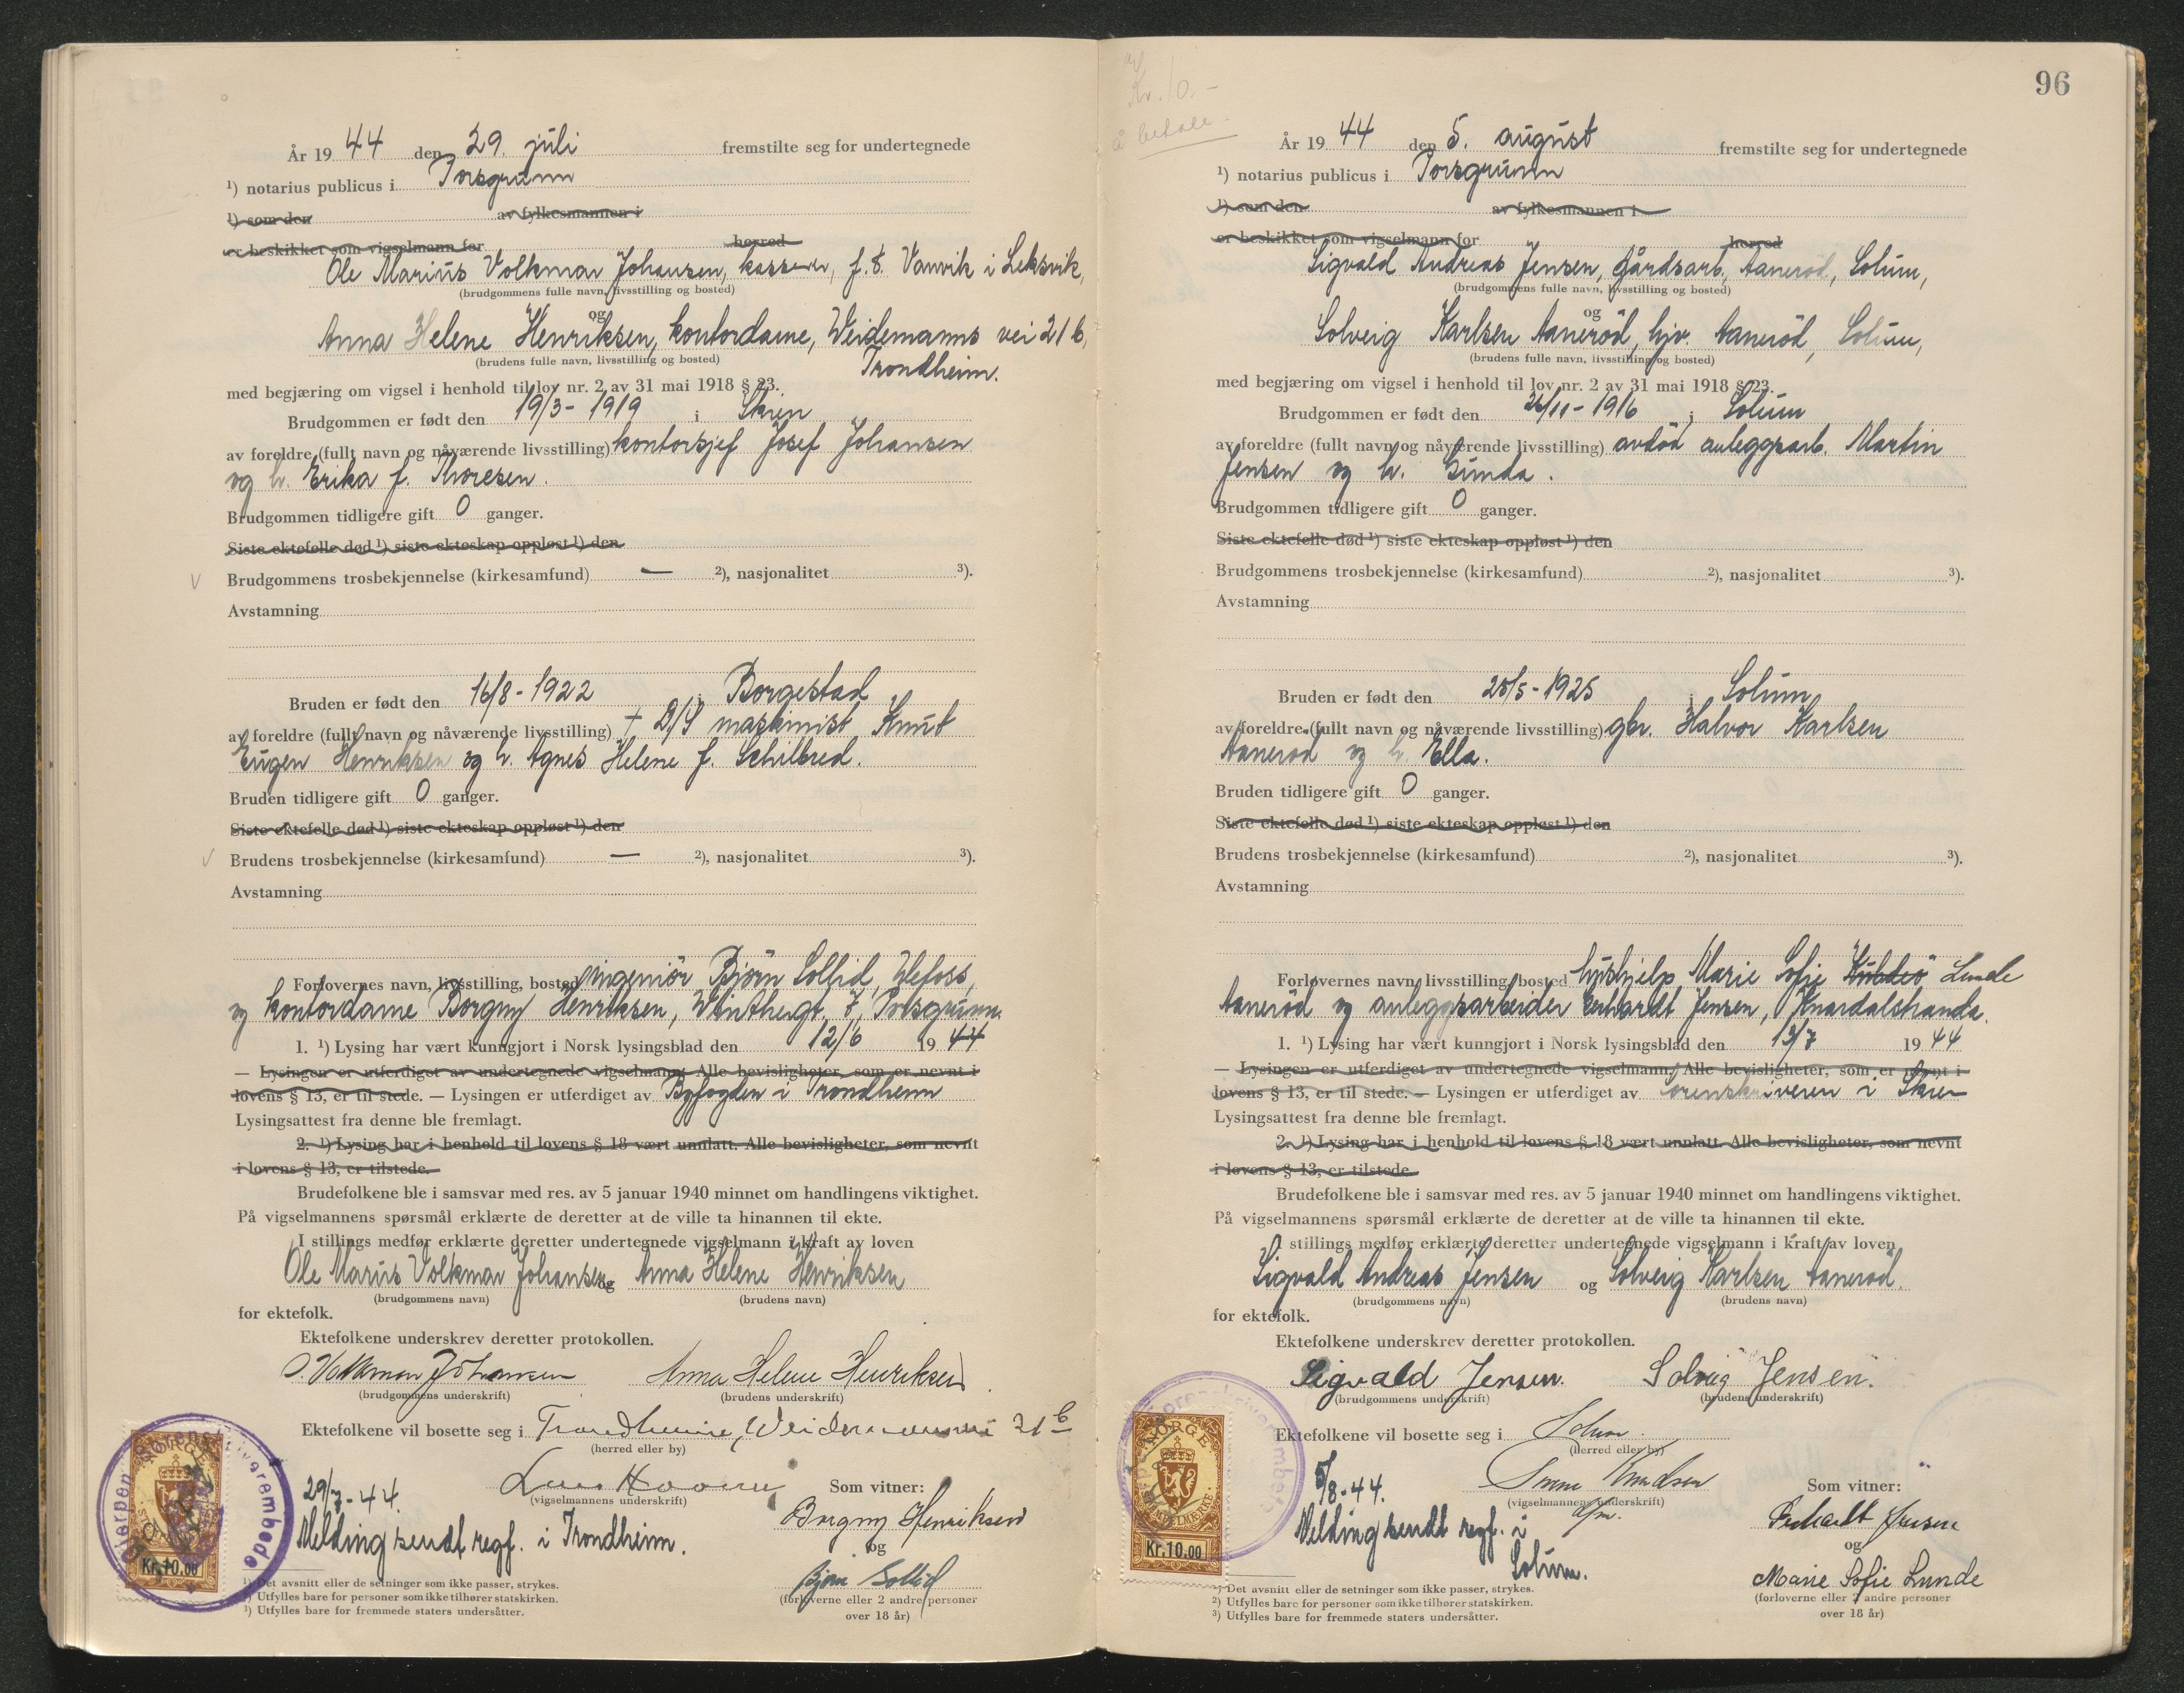 År 19 44 den 29. juli fremstilte seg for undertegnede
¹) notarius publicus i Porsgrunn
¹) som den av fylkesmannen i
er beskikket som vigselmann for herred
Ole Marius Volkmar Johansen, kasserer, f.t. Vanvik i Leksvik,
(brudgommens fulle navn, livsstilling og bosted)
og
Anna Helene Henriksen, kontordame, Weidemanns vei 21 b,
(brudens fulle navn, livsstilling og bosted)
Trondheim.
med begjæring om vigsel i henhold til lov nr. 2 av 31 mai 1918 § 23.
Brudgommen er født den 19/3 - 1919 i Skien
av foreldre (fullt navn og nåværende livsstilling) kontorsjef Josef Johansen
og h. Erika f. Thoresen.
Brudgommen tidligere gift 0 ganger.
Siste ektefelle død ¹) siste ekteskap oppløst ¹) den
Brudgommens trosbekjennelse (kirkesamfund) — ²), nasjonalitet ³).
Avstamning
Bruden er født den 16/8 - 1922 i Borgestad
av foreldre (fullt navn og nåværende livsstilling) + D/S maskinist Knut
Eugen Henriksen og h. Agnes Helene f. Schilbred.
Bruden tidligere gift 0 ganger.
Siste ektefelle død ¹) siste ekteskap oppløst ¹) den
Brudens trosbekjennelse (kirkesamfund) — ²), nasjonalitet ³).
Avstamning
Forlovernes navn, livsstilling, bosted ingeniør Bjørn Sollid, Ulefoss,
og kontordame Borgny Henriksen, Winthergt. 7, Porsgrunn.
1. ¹) Lysing har vært kunngjort i Norsk lysingsblad den 12/6 19 44
— Lysingen er utferdiget av undertegnede vigselmann. Alle bevisligheter, som er nevnt i
lovens § 13, er til stede. — Lysingen er utferdiget av Byfogden i Trondheim
Lysingsattest fra denne ble fremlagt.
2. ¹) Lysing har i henhold til lovens § 18 vært unnlatt. Alle bevisligheter, som nevnt
i lovens § 13, er tilstede.
Brudefolkene ble i samsvar med res. av 5 januar 1940 minnet om handlingens viktighet.
På vigselmannens spørsmål erklærte de deretter at de ville ta hinannen til ekte.
I stillings medfør erklærte deretter undertegnede vigselmann i kraft av loven
Ole Marius Volkmar Johansen og Anna Helene Henriksen
(brudgommens navn) (brudens navn)
for ektefolk.
Ektefolkene underskrev deretter protokollen.
O. Volkmar Johansen Anna Helene Henriksen
(brudgommens underskrift) (brudens underskrift)
Ektefolkene vil bosette seg i Trondheim, Weidemannsvei 21 b
(herred eller by)
29/7 - 44.
(vigselmannens underskrift)
Som vitner:
Melding sendt regf. i Trondheim.
Borgny Henriksen
og
Bjørn Sollid
(forloverne eller 2 andre personer
over 18 år)
NORGE
Kr.10.00
¹) Det avsnitt eller de setninger som ikke passer, strykes.
²) Utfylles bare for personer som ikke tilhører statskirken.
³) Utfylles bare for fremmede staters undersåtter.
96
Kr. 10.-
å betale.
År 19 44 den 5. august fremstilte seg for undertegnede
¹) notarius publicus i Porsgrunn
¹) som den av fylkesmannen i
er beskikket som vigselmann for herred
Sigvald Andreas Jensen, gårdsarb., Aanerød, Solum,
(brudgommens fulle navn, livsstilling og bosted)
og
Solveig Karlsen Aanerød, hjv. Aanerød, Solum,
(brudens fulle navn, livsstilling og bosted)
med begjæring om vigsel i henhold til lov nr. 2 av 31 mai 1918 § 23.
Brudgommen er født den 26/11 - 1916 i Solum
av foreldre (fullt navn og nåværende livsstilling) avdød anleggsarb. Martin
Jensen og h. Gunda.
Brudgommen tidligere gift 0 ganger.
Siste ektefelle død ¹) siste ekteskap oppløst ¹) den
Brudgommens trosbekjennelse (kirkesamfund) ²), nasjonalitet ³).
Avstamning
Bruden er født den 25/5 - 1925 i Solum
av foreldre (fullt navn og nåværende livsstilling) gbr. Halvor Karlsen
Aanerød og h. Ella.
Bruden tidligere gift 0 ganger.
Siste ektefelle død ¹) siste ekteskap oppløst ¹) den
Brudens trosbekjennelse (kirkesamfund) ²), nasjonalitet ³).
Avstamning
Forlovernes navn, livsstilling, bosted hushjelp Marie Sofie Lunde
Aanerød og anleggsarbeider Erhardt Jensen, Knardalstranda.
1. ¹) Lysing har vært kunngjort i Norsk lysingsblad den 13/7 19 44
— Lysingen er utferdiget av undertegnede vigselmann. Alle bevisligheter, som er nevnt i
lovens § 13, er til stede. — Lysingen er utferdiget av sorenskriveren i Skien
Lysingsattest fra denne ble fremlagt.
2. ¹) Lysing har i henhold til lovens § 18 vært unnlatt. Alle bevisligheter, som nevnt
i lovens § 13, er tilstede.
Brudefolkene ble i samsvar med res. av 5 januar 1940 minnet om handlingens viktighet.
På vigselmannens spørsmål erklærte de deretter at de ville ta hinannen til ekte.
I stillings medfør erklærte deretter undertegnede vigselmann i kraft av loven
Sigvald Andreas Jensen og Solveig Karlsen Aanerød.
(brudgommens navn) (brudens navn)
for ektefolk.
Ektefolkene underskrev deretter protokollen.
Sigvald Jensen. Solveig Jensen.
(brudgommens underskrift) (brudens underskrift)
Ektefolkene vil bosette seg i Solum.
(herred eller by)
5/8 - 44.
Knudsen
(vigselmannens underskrift)
Som vitner:
Melding sendt regf. i
Solum.
Erhardt Jensen
og
Marie Sofie Lunde
(forloverne eller 2 andre personer
over 18 år)
NORGE
Kr.10.00
¹) Det avsnitt eller de setninger som ikke passer, strykes.
²) Utfylles bare for personer som ikke tilhører statskirken.
³) Utfylles bare for fremmede staters undersåtter.